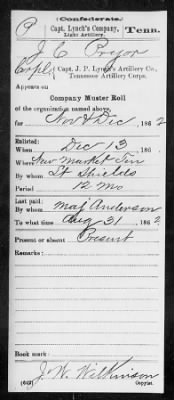 (Confederate.)
P Capt. Lynch's Company, Light Artillery. Tenn.
J. C. Pryor
Corpl, Capt. J. P. Lynch's Artillery Co.,
Tennessee Artillery Corps.
Appears on
Company Muster Roll
of the organization named above,
for Nov & Dec, 1862
Enlisted:
When Dec 13, 186
Where New Market Ten
By whom Lt Shields
Period 12 mo
Last paid:
By whom Maj Anderson
To what time Aug 31, 1862
Present or absent Present
Remarks:
Book mark:
J. W. Wilkinson
(642) Copyist.